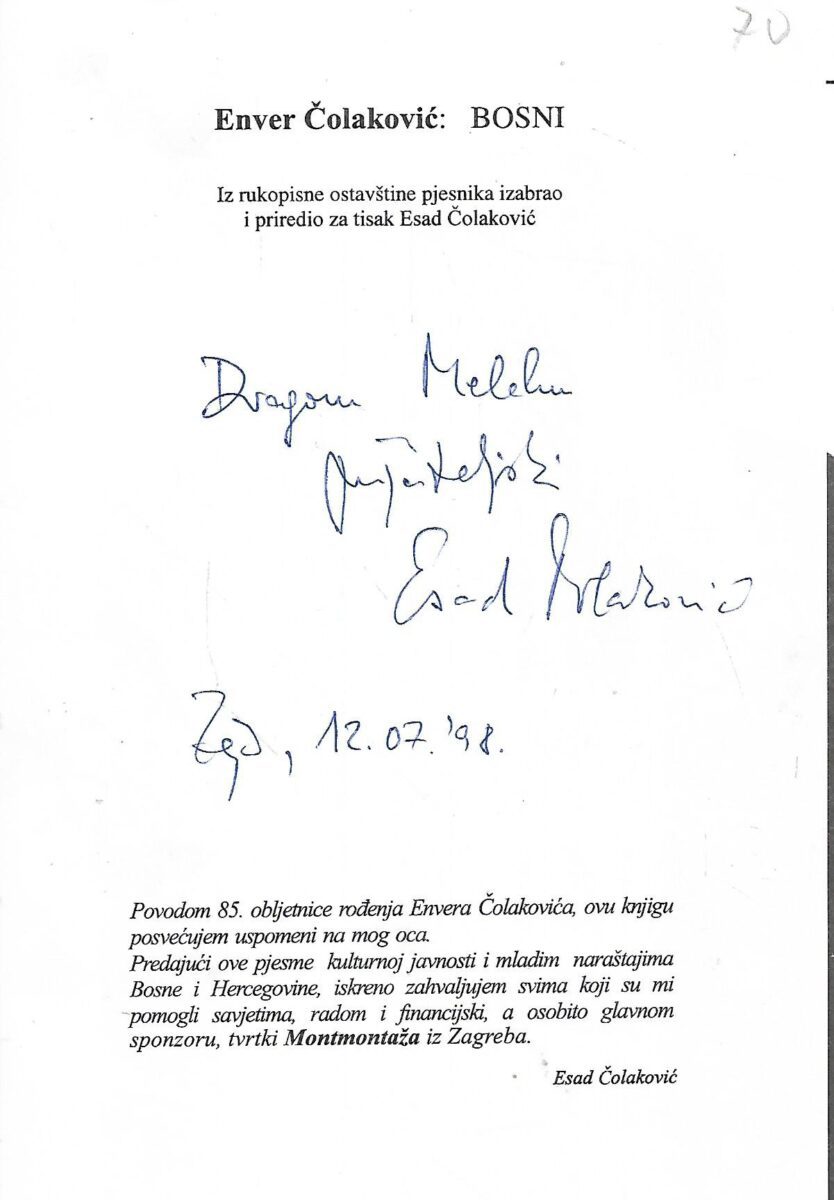 70
Enver Čolaković: BOSNI
Iz rukopisne ostavštine pjesnika izabrao
i priredio za tisak Esad Čolaković
Dragom
prijateljski
Esad Čolaković
Zgb, 12.07.'98.
Povodom 85. obljetnice rođenja Envera Čolakovića, ovu knjigu
posvećujem uspomeni na mog oca.
Predajući ove pjesme kulturnoj javnosti i mladim naraštajima
Bosne i Hercegovine, iskreno zahvaljujem svima koji su mi
pomogli savjetima, radom i financijski, a osobito glavnom
sponzoru, tvrtki Montmontaža iz Zagreba.
Esad Čolaković